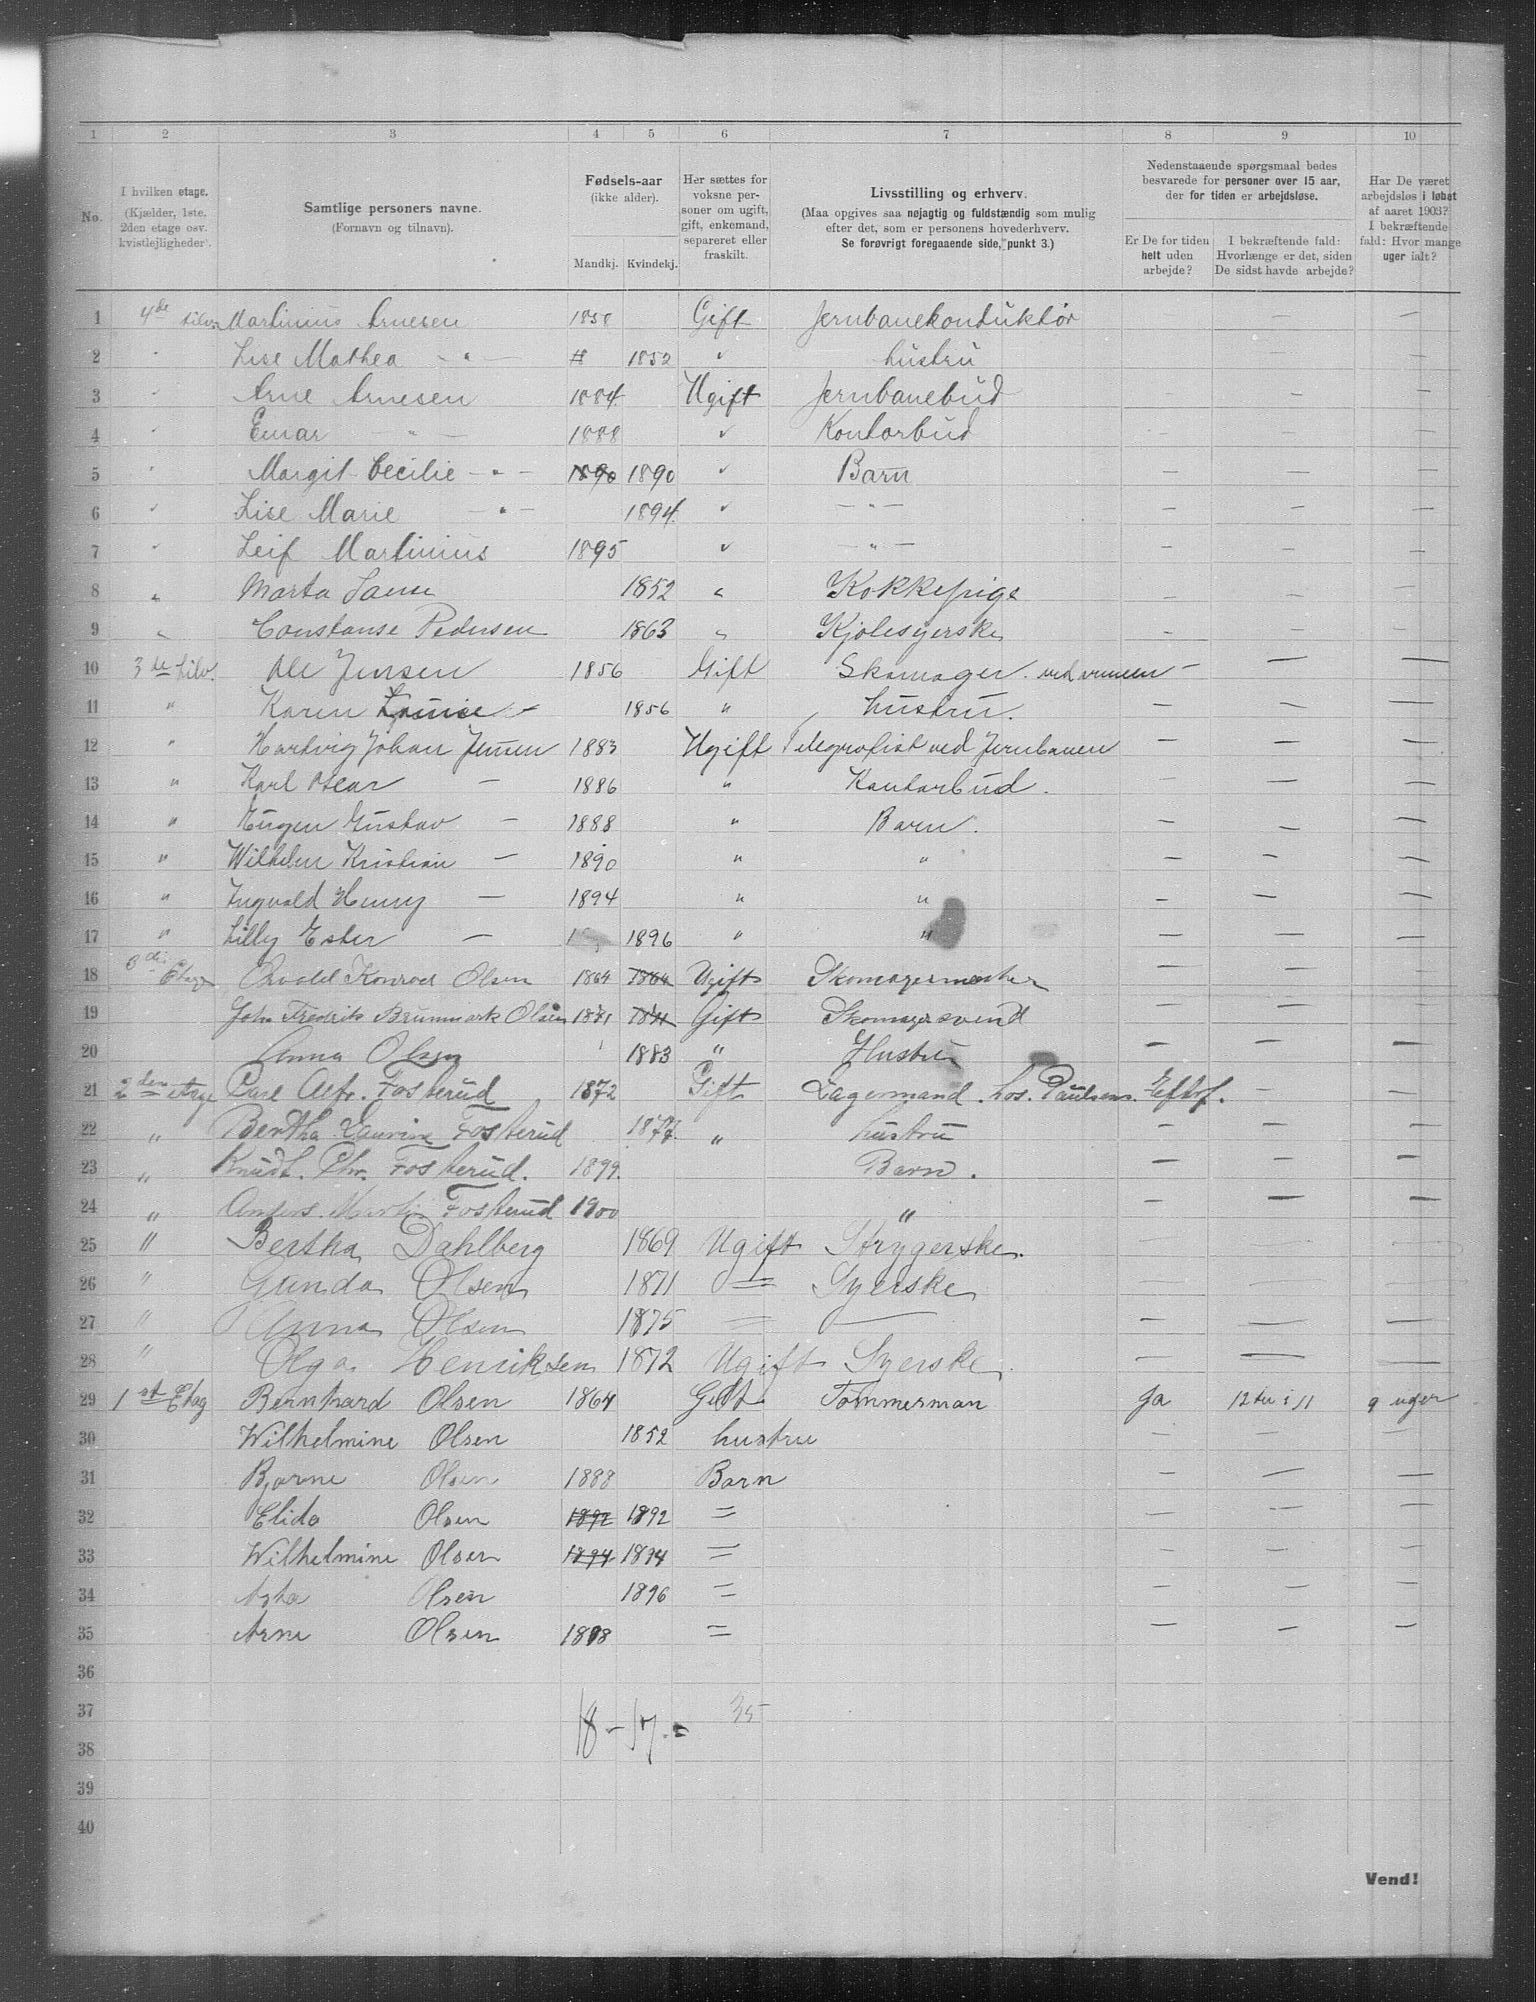 1 2 3 4 5 6 7 8 9 10
No.
I hvilken etage. (Kjælder, 1ste. 2den etage osv. kvistlejligheder).
Samtlige personers navne. (Fornavn og tilnavn).
Fødsels-aar (ikke alder). Mandkj. Kvindekj.
Her sættes for voksne personer om ugift, gift, enkemand, separeret eller fraskilt.
Livsstilling og erhverv. (Maa opgives saa nøjagtig og fuldstændig som mulig efter det, som er personens hovederhverv. Se forøvrigt foregaaende side, punkt 3.)
Nedenstaaende spørgsmaal bedes besvarede for personer over 15 aar, der for tiden er arbejdsløse.
Er De for tiden helt uden arbejde?
I bekræftende fald: Hvorlænge er det, siden De sidst havde arbejde?
Har De været arbejdsløs i løbet af aaret 1903? I bekræftende fald: Hvor mange uger ialt?
1 4de Martinius Arnesen 1858 Gift Jernbanekonduktør — —
2 " Lise Mathea — " — 1852 " hustru — —
3 " Arne Arnesen 1884 Ugift Jernbanebud — — —
4 " Einar — " — 1888 " Kontorbud — — —
5 " Margit Cecilie — " — 1890 1890 " Barn — — —
6 " Lise Marie — " — 1894 " — " — — — —
7 " Leif Martinius 1895 " — " — — — —
8 " Marta 1852 " Kokkepige — — —
9 " Constanse Pedersen 1863 " Kjolesyerske — — —
10 3de Ole Jensen 1856 Gift Skomager — — —
11 " Karen Louise — 1856 " hustru. — — —
12 " Hartvig Johan Jensen 1883 Ugift Telegrafist ved Jernbanen — — —
13 " Karl Oscar — 1886 " Kontorbud. — — —
14 " Eugen Gustav — 1888 " Barn. — — —
15 " Wilhelm Kristian — 1890 " " — — —
16 " Ingvald Henry — 1894 " " — — —
17 " Lilly Ester — 1896 " " — — —
18 3die Etage Osvald Konrad Olsen 1864 1864 Ugift Skomagermester — — —
19 John Fredrik Brummark Olsen 1871 1871 Gift Skomagersvend — — —
20 Anna Olsen 1883 " Hustru — — —
21 2den etage Carl Alfr. Fosterud 1872 Gift Lagermand. hos. Paulsens Eftf. — —
22 " Bertha Laurine Fosterud 1877. " hustru — — —
23 " Knudt. Chr. Fosterud. 1899. Barn. — — —
24 " Anders. Martin Fosterud 1900 " — — —
25 " Bertha Dahlberg 1869 Ugift Strygerske. — — —
26 " Gunda Olsen 1871 = Syerske — — —
27 " Anna Olsen 1875 = — — — —
28 " Olga Henriksen 1872 Ugift Syerske. — — —
29 1st Etag Bernhard Olsen 1864 Gift Tømmerman Ja 12te i 11 9 uger
30 Wilhelmine Olsen 1852 hustru — — —
31 Bjarne Olsen 1888 Barn — — —
32 Elida Olsen 1892 1892 = — — —
33 Wilhelmine Olsen 1894 1894 = — — —
34 Olsen 1896 = — — —
35 Arne Olsen 1898 = — — —
36
37 18 – 17. = 35
38
39
40
Vend!